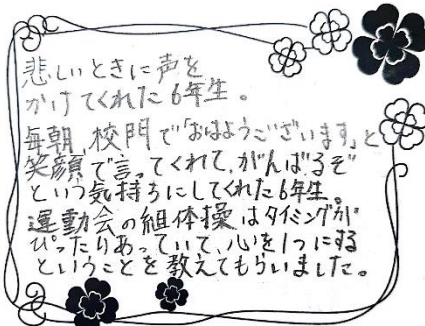 悲しいときに声を
かけてくれた6年生。
毎朝、校門で「おはようございます」と
笑顔で言ってくれて、がんばるぞ
という気持ちにしてくれた6年生。
運動会の組体操はタイミングが
ぴったりあっていて、心を1つにする
ということを教えてもらいました。